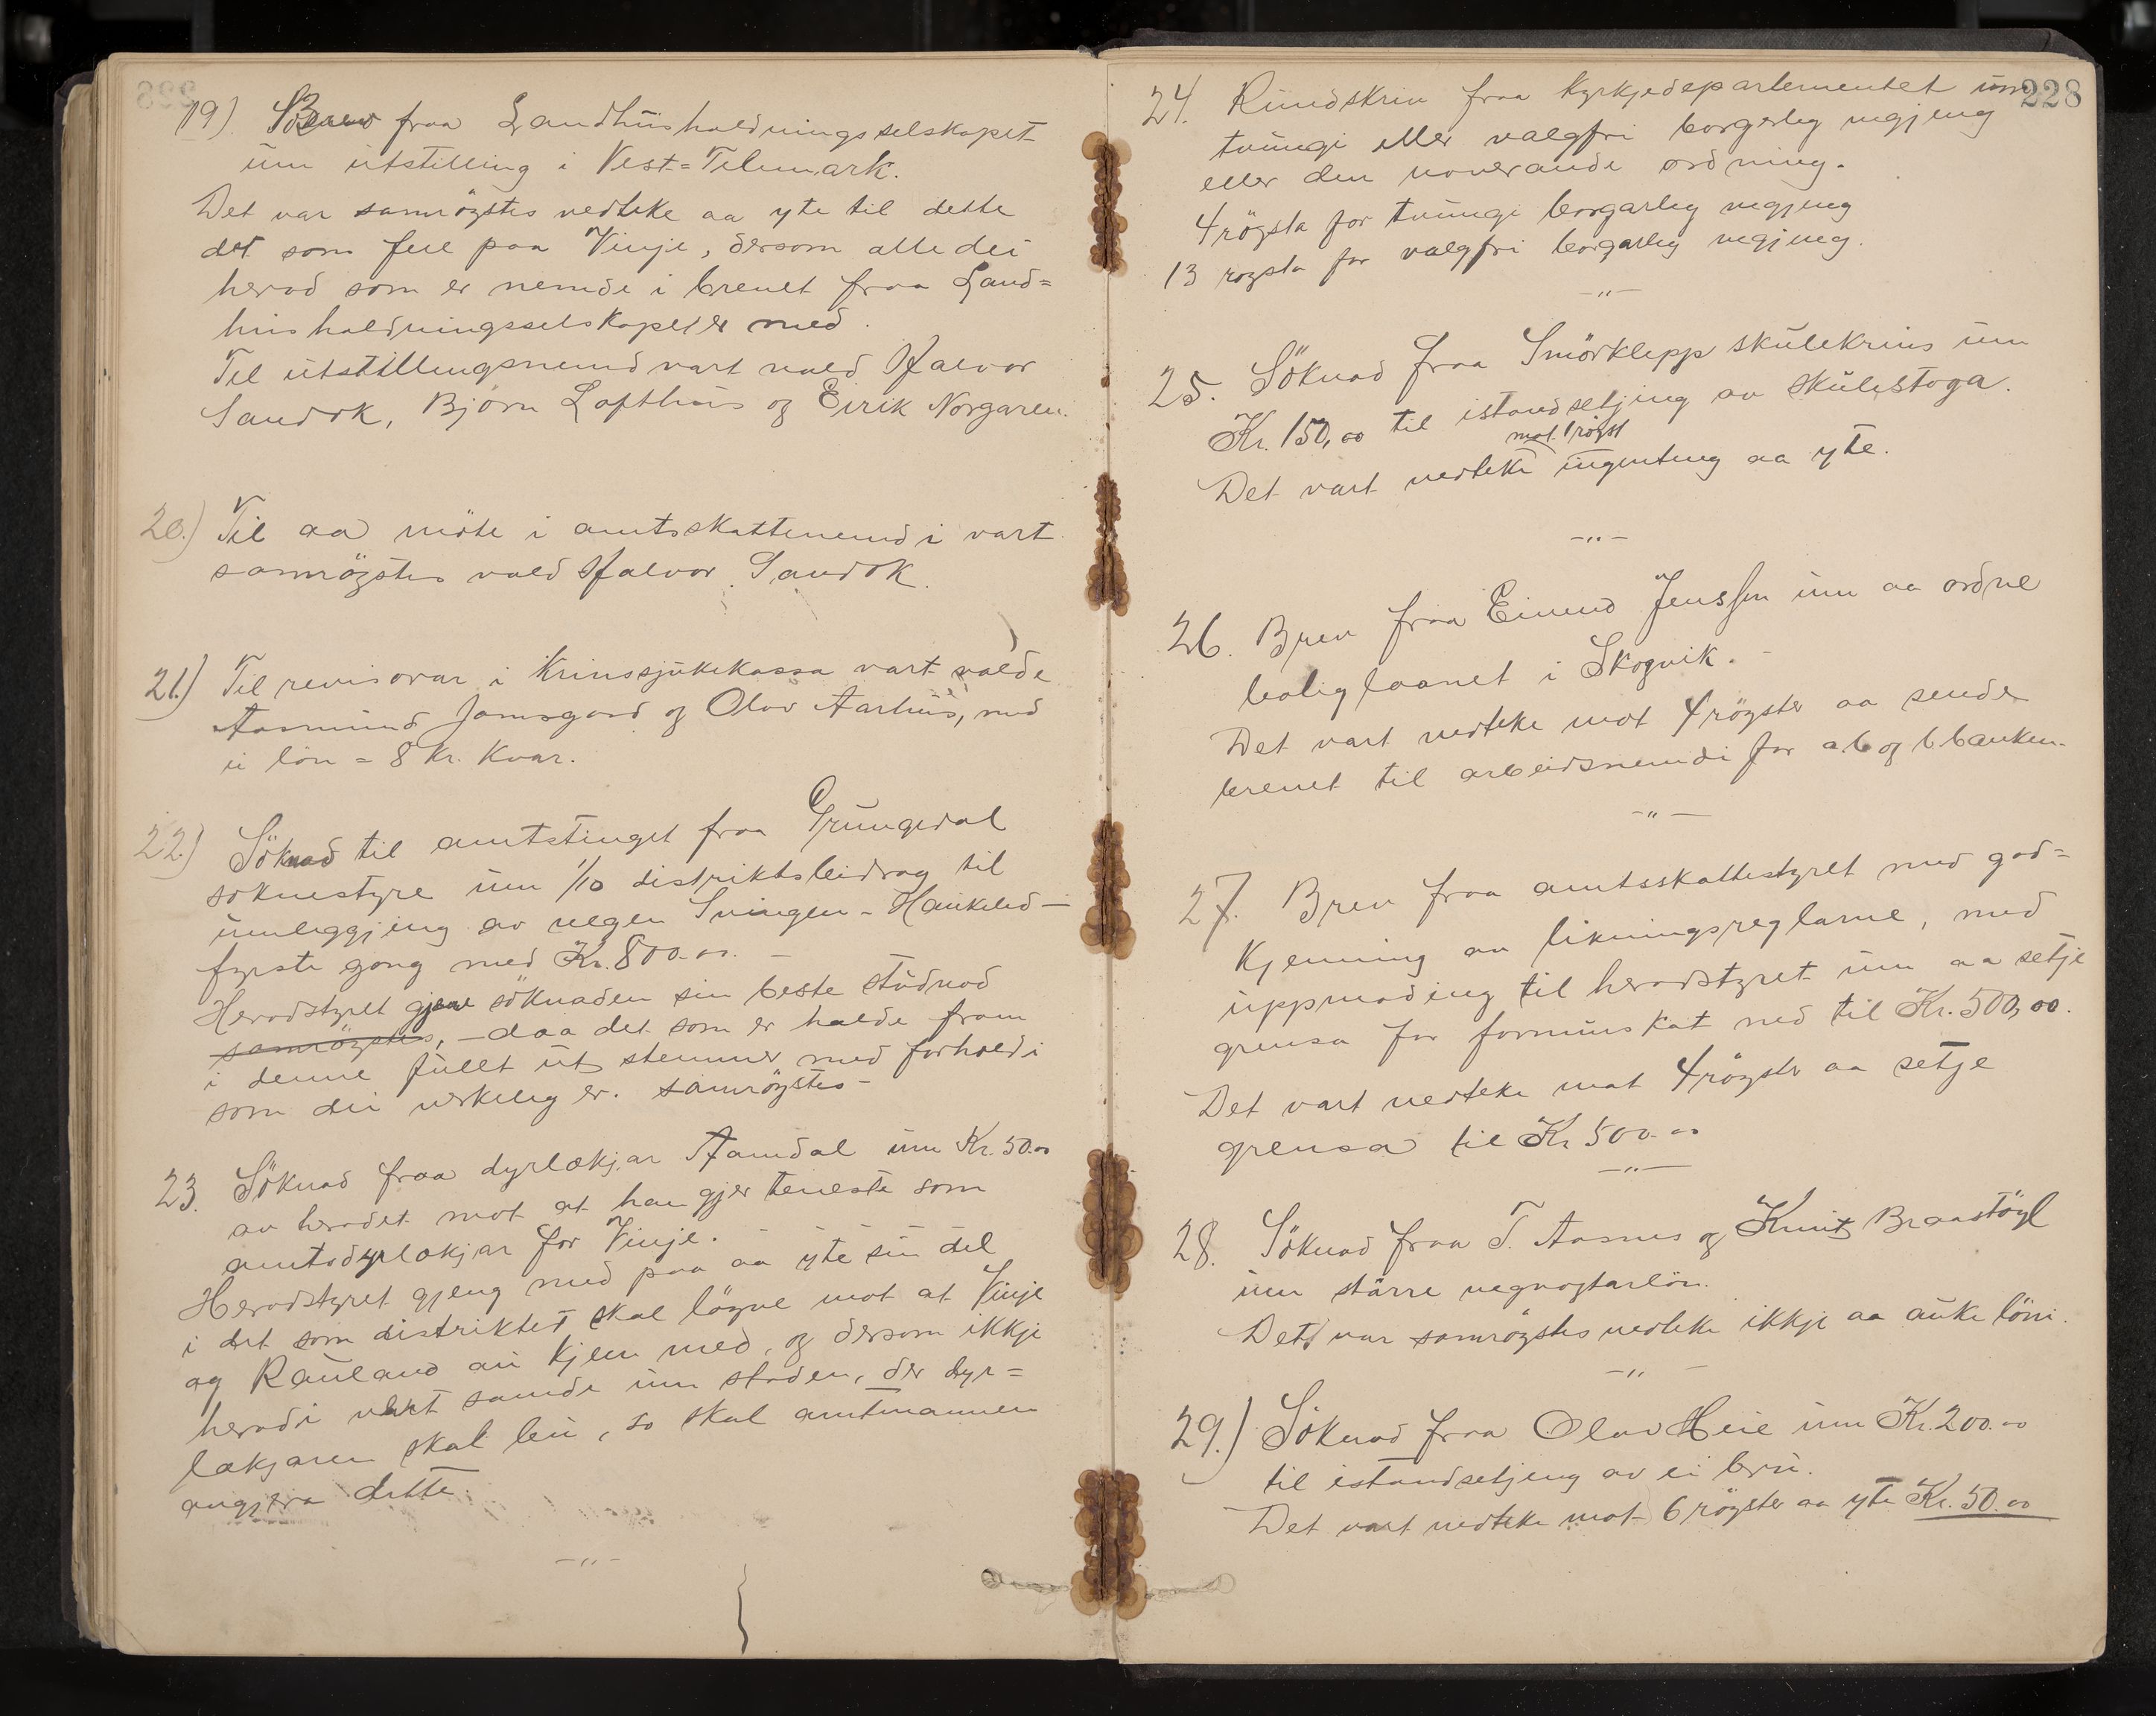 19). Brev fraa Landhúshaldningsselskapet
úm útstilling i Vest=Telemark.
Det var samröystes vedteke aa yte til dette
det som fell paa Vinje, dersom alle dei
herad som er nemde i brevet fraa Land=
hushaldningsselskapet er med.
Til útstillingsnemnd vart vald Halvor
Sandok, Björn Lofthús og Eirik Norgaren.
20.) Til aa möte i amtsskattenemndi vart
samröystes vald Halvor Sandok.
21.) Til revisorar i Krinssjúkekassa vart valde
Aasmúnd Jamsgard og Olav Aarhús, med
ei lön = 8 Kr. Kvar.
22.) Söknad til amtstinget fraa Grúngedal
soknestyre úm 1/10 distriktsbeidrag til
úmleggjing av vegen Svingen - Haúkelid -
fyrste gong med Kr. 800.00. -
Heradstyret gjeve söknaden sin beste stúdnad
samröystes, - daa det som er halde fram
i denne fúllt út stemmer med forholdi
som dei verkeleg er. samröystes -
23. Söknad fraa dyrlækjar Aamdal úm Kr. 50.00
av heradet mot at han gjer teneste som
amtsdyrlækjar for Vinje.
Heradstyret gjeng med paa aa yte sin del
i det som distriktet skal löyve mot at Vinje
og Raúland au kjem med, og dersom ikkje
heradi vert samde úm staden, der dyr=
lækjaren skal bu, so skal amtmannen
avgjera dette.
-"-
228
24. Rúndskriv fraa Kyrkjedepartementet úm
tvúngi eller valgfri borgerleg vigjeng
eller den noverande ordning.
4 röysta for tvúngi borgarleg vigjeng
13 röysta for valgfri borgarleg vigjeng.
-"-
25. Söknad fraa Smörklepp skúlekrins úm
Kr. 150,00 til istandsetjing av skúlestoga.
mot 1 röyst
Det vart vedteke ingenting aa yte.
-"-
26. Brev fraa Eivind Jenssen úm aa ordne
boliglaanet i Skogvik. -
Det vart vedteke mot 4 röyster aa sende
brevet til arbeidsnemdi for a.b og b.banken.
-"-
27. Brev fraa amtsskattestyret med god=
kjenning av likningsreglarne, med
úppmoding til heradstyret úm aa setje
grensa for formúeskat ned til Kr. 500,00.
Det vart vedteke mot 4 röyster aa setje
grensa til Kr 500.00
-"-
28. Söknad fraa T. Aasnes og Knút Braastöyl
úm större vegvogtarlön.
Det var samröystes vedteke ikkje aa aúke löni.
-"-
29.) Söknad fraa Olav Heie úm Kr. 200.00
til istandsetjeng av ei brú.
Det vart vedteke mot 6 röyster aa yte Kr. 50.00